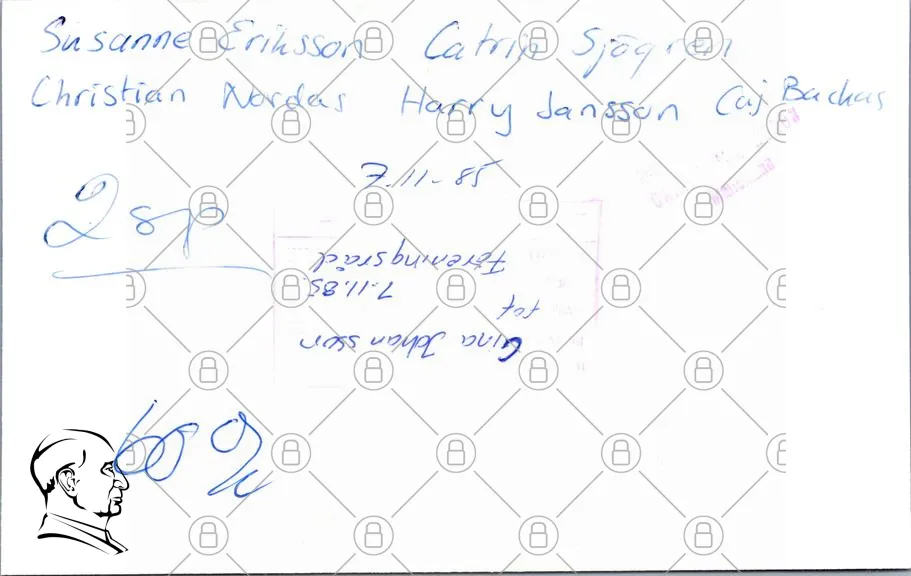 Susanne Eriksson Catrin Sjögren
Christian Nordas Harry Jansson Caj Backas
7.11-85
2 sp
Gina Johansson
fot
7.11.85
Föreningsråd